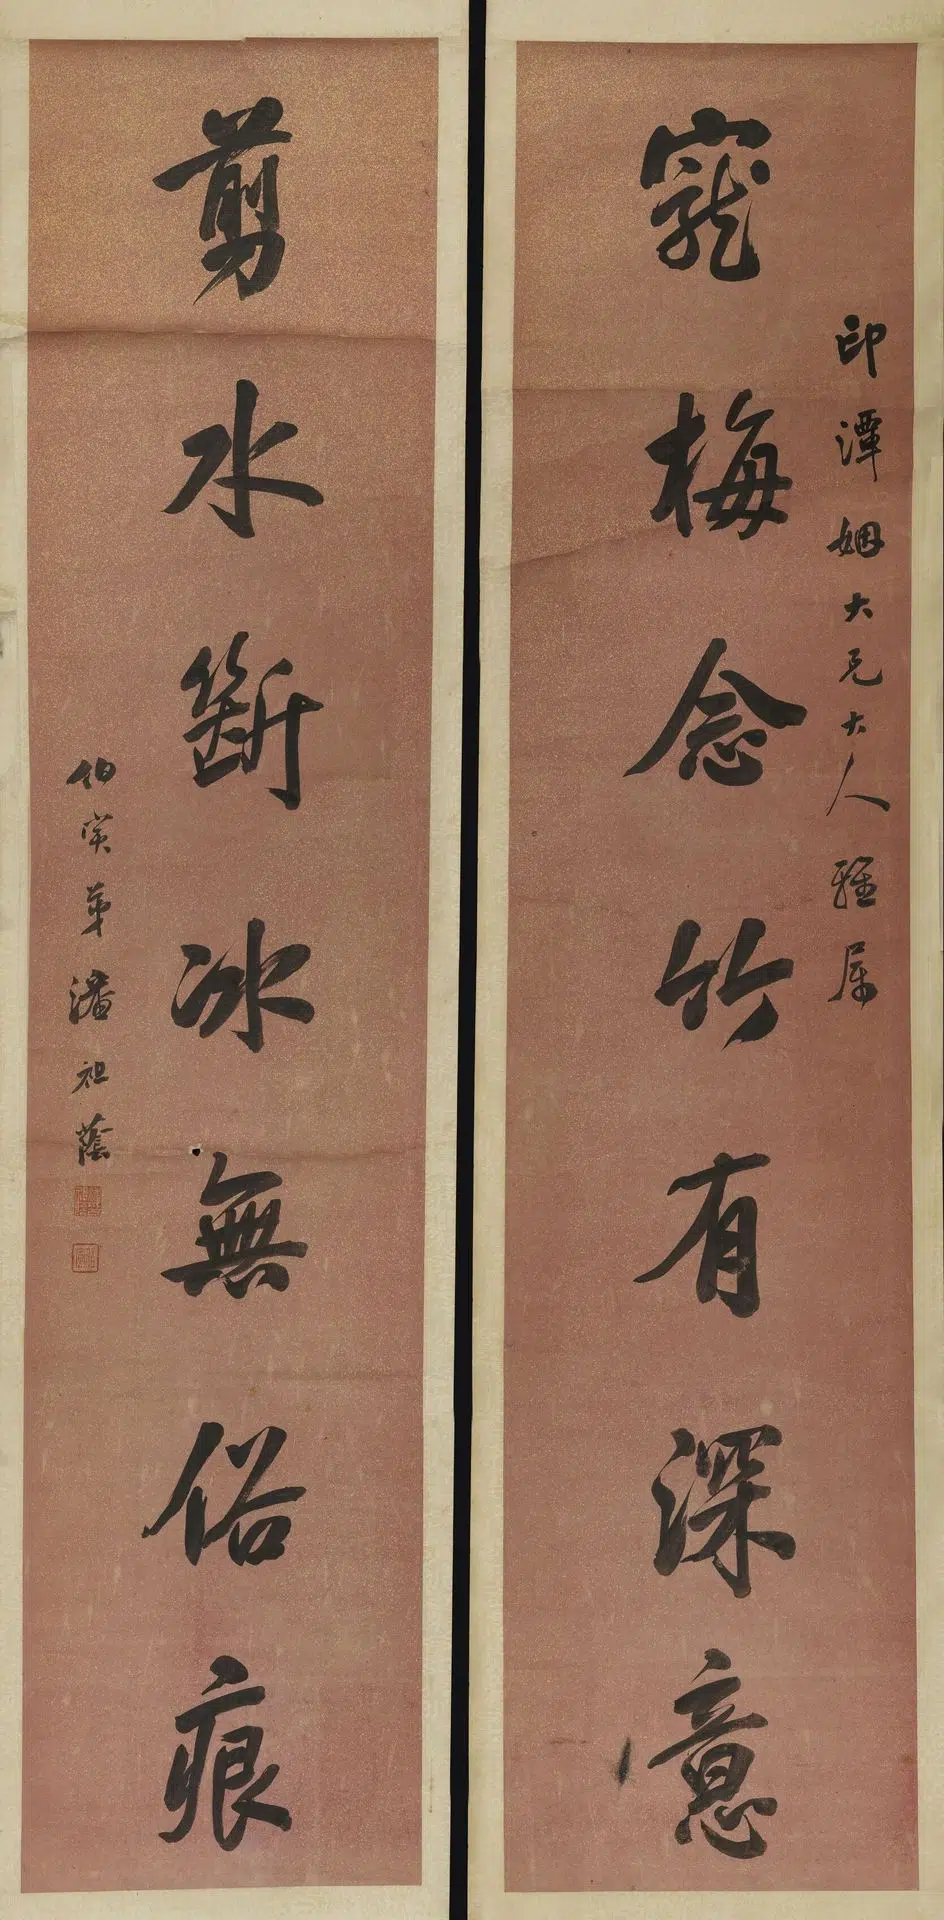 印潭姻大兄大人雅屬
寵梅念竹有深意
剪水斷冰無俗痕
伯寅弟潘祖蔭